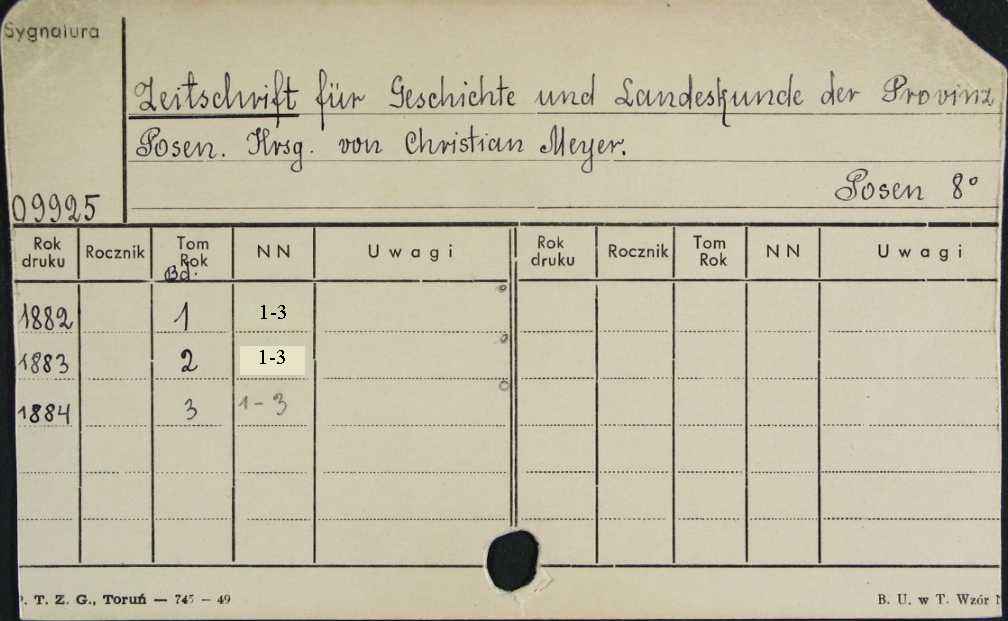 Sygnatura
Zeitschrift für Geschichte und Landeskunde der Provinz
Posen. Hrsg. von Christian Meyer.
Posen 8°
09925
Rok druku Rocznik Tom Rok Bd. NN Uwagi Rok druku Rocznik Tom Rok NN Uwagi
1882 1 1-3
1883 2 1-3
1884 3 1-3
. T. Z. G., Toruń — 745 — 49
B. U. w T. Wzór